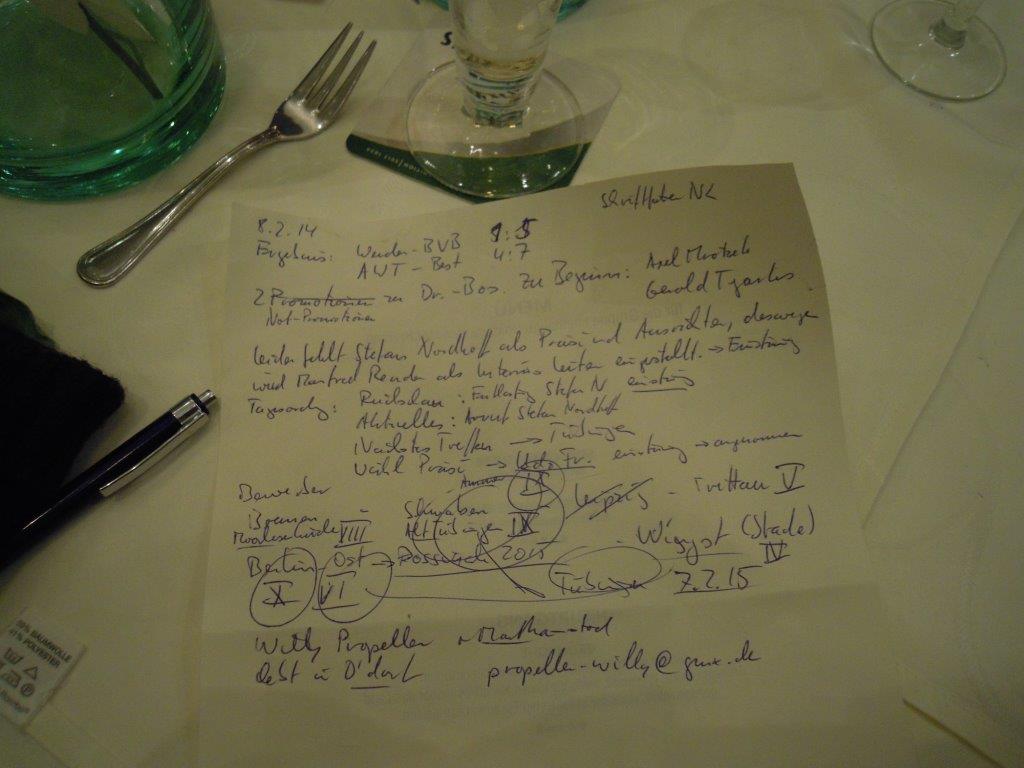 8.2.14
Ergebnis: Werder-BVB 1:5
AWT - Best 4:7
2 Promotionen zu Dr.-Bos. zu Beginn: Axel
Not-Promotionen Gerold
leider fehlt Stefan Nordhoff als Präsi und Ausrichter, deswegen
wird Manfred als Interims Leiter eingestellt. → Einstimmig
Tagesordg: Rückschau: Entlastg Stefan N. einstimmig
Aktuelles: Stefan Nordhoff
Nächstes Treffen → Tübingen
Wahl Präsi → Udo Fr. einstimmig → angenommen
Bewerber
Bremen Schwaben IX Leipzig - Trittau V
VIII Alttübingen IX
Berlin Ost → 2015 - Wingst (Stade)
X VI Tübingen 7.2.15 IV
Willy Propeller
lebt in D'dorf propeller-willy@gmx.de